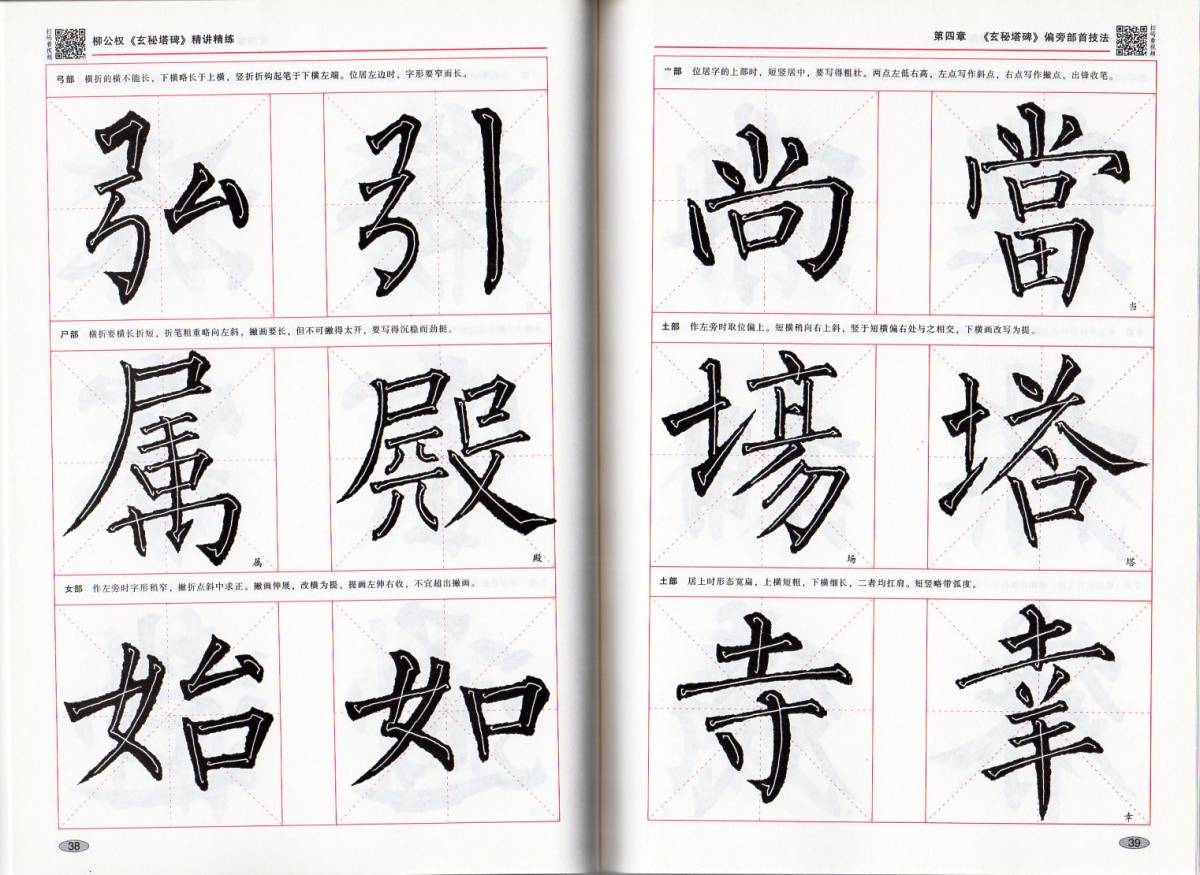 扫码看视频
柳公权《玄秘塔碑》精讲精练
弓部 横折的横不能长，下横略长于上横，竖折折钩起笔于下横左端。位居左边时，字形要窄而长。
弘 引
尸部 横折要横长折短，折笔粗重略向左斜，撇画要长，但不可撇得太开，要写得沉稳而劲挺。
属 殿
属 殿
女部 作左旁时字形稍窄，撇折点斜中求正。撇画伸展，改横为提，提画左伸右收，不宜超出撇画。
始 如
38
第四章 《玄秘塔碑》偏旁部首技法
扫码看视频
⺌部 位居字的上部时，短竖居中，要写得粗壮。两点左低右高，左点写作斜点，右点写作撇点，出锋收笔。
尚 當
当
土部 作左旁时取位偏上。短横稍向右上斜，竖于短横偏右处与之相交，下横画改写为提。
場 塔
场 塔
土部 居上时形态宽扁，上横短粗，下横细长，二者均扛肩。短竖略带弧度。
寺 幸
幸
39